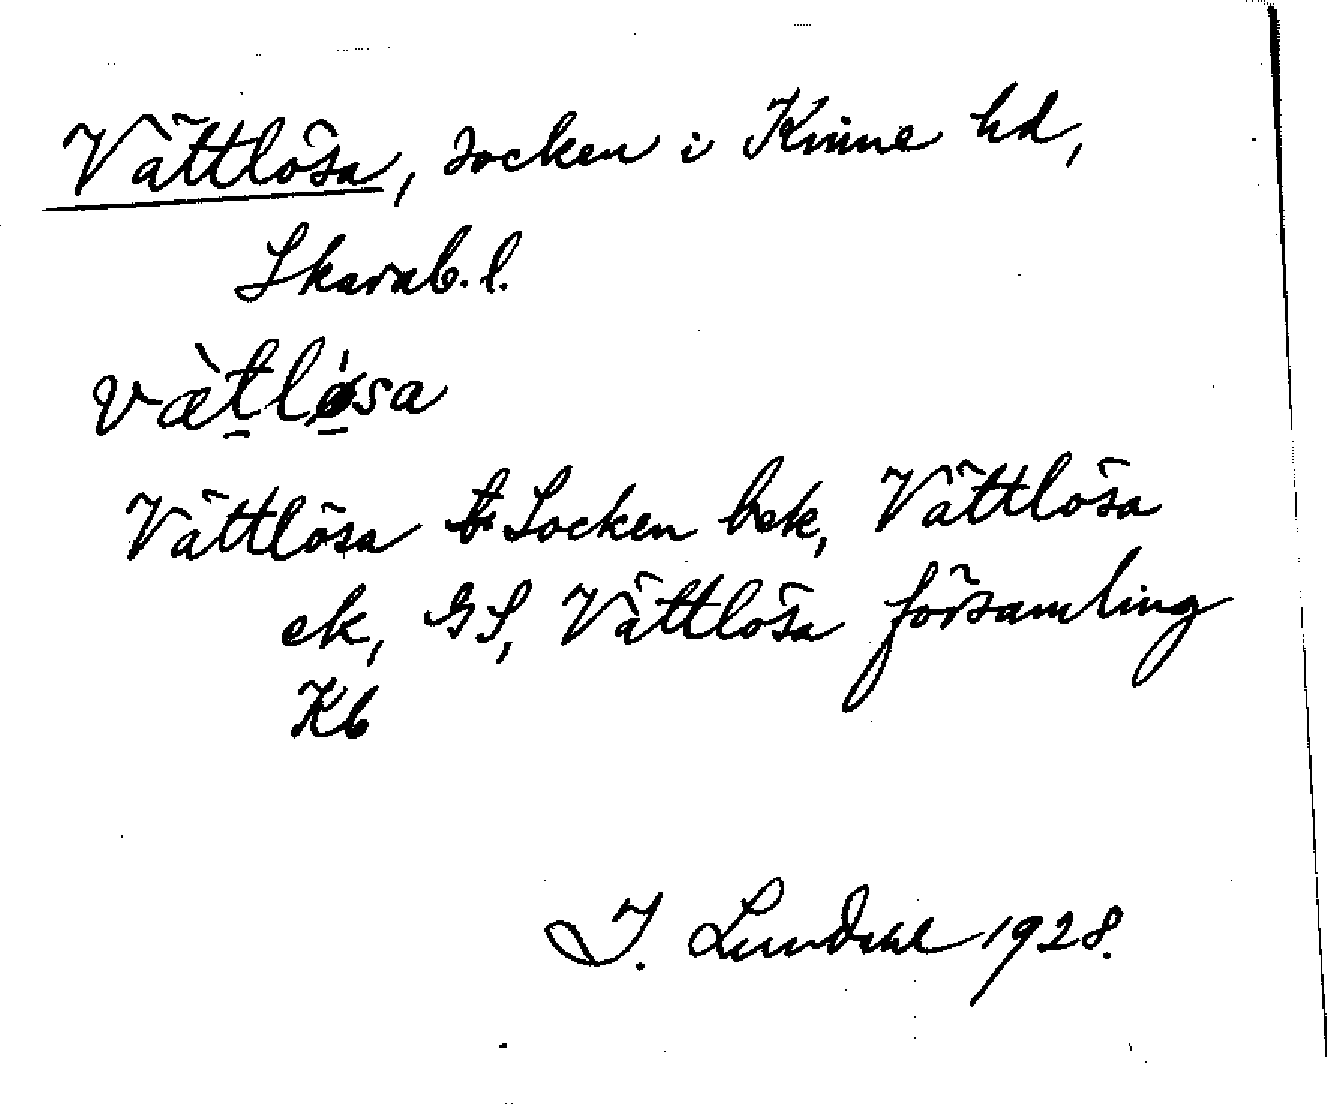 Vättlösa, socken i Kinne hd,
Skarab. l.
væ̀t̠lǿ̠sa
Vättlösa Socken bek, Vättlösa
ek, GS, Vättlösa församling
Kb
I. Lundahl 1928.